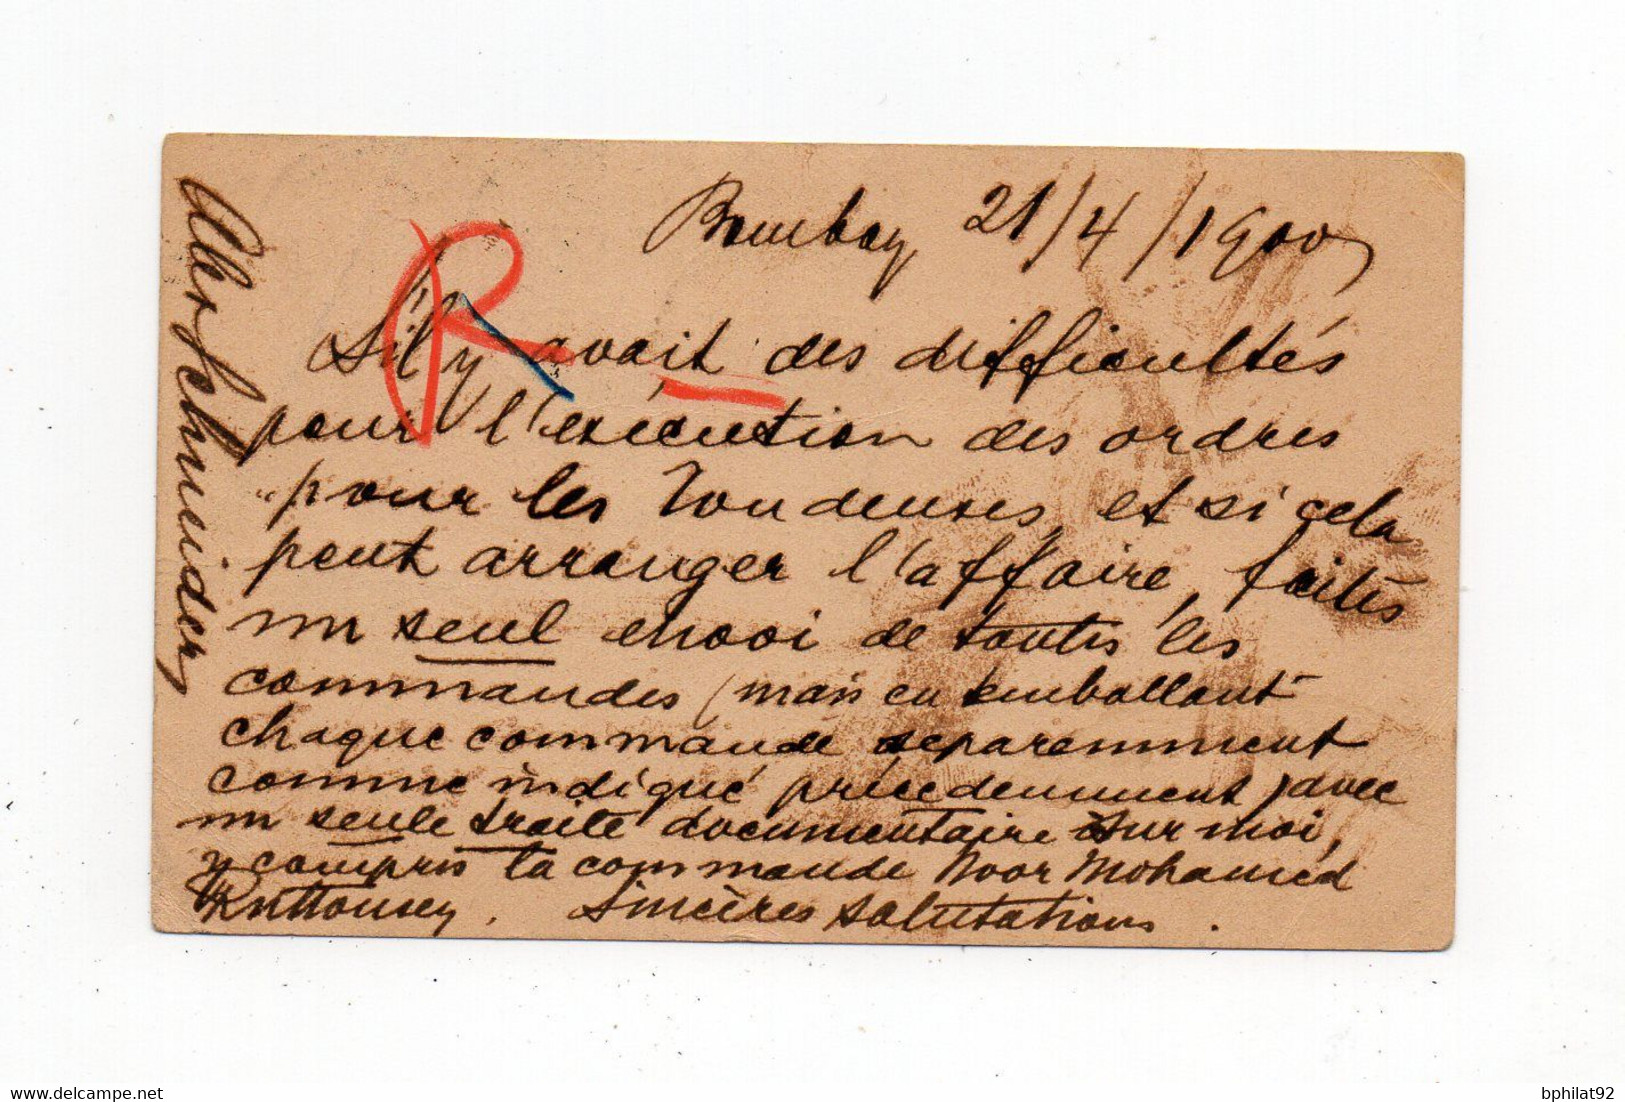 Bombay 21/4/1900
R
S'il y avait des difficultés
pour l'exécution des ordres
pour les Tondeuses, et si cela
peut arranger l'affaire, faites
un seul envoi de toutes les
commandes (mais en emballant
chaque commande separemment
comme indiqué précedemment) avec
un seule traite documentaire sur moi,
y compris la commande Noor Mohamed
Sincères salutations.
Alex Schneider
www.delcampe.net
bphilat92